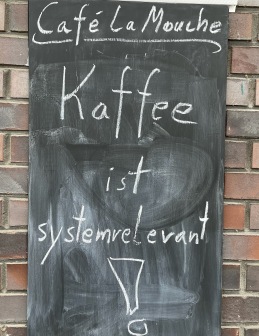 Café La Mouche
Kaffee
ist
systemrelevant
!